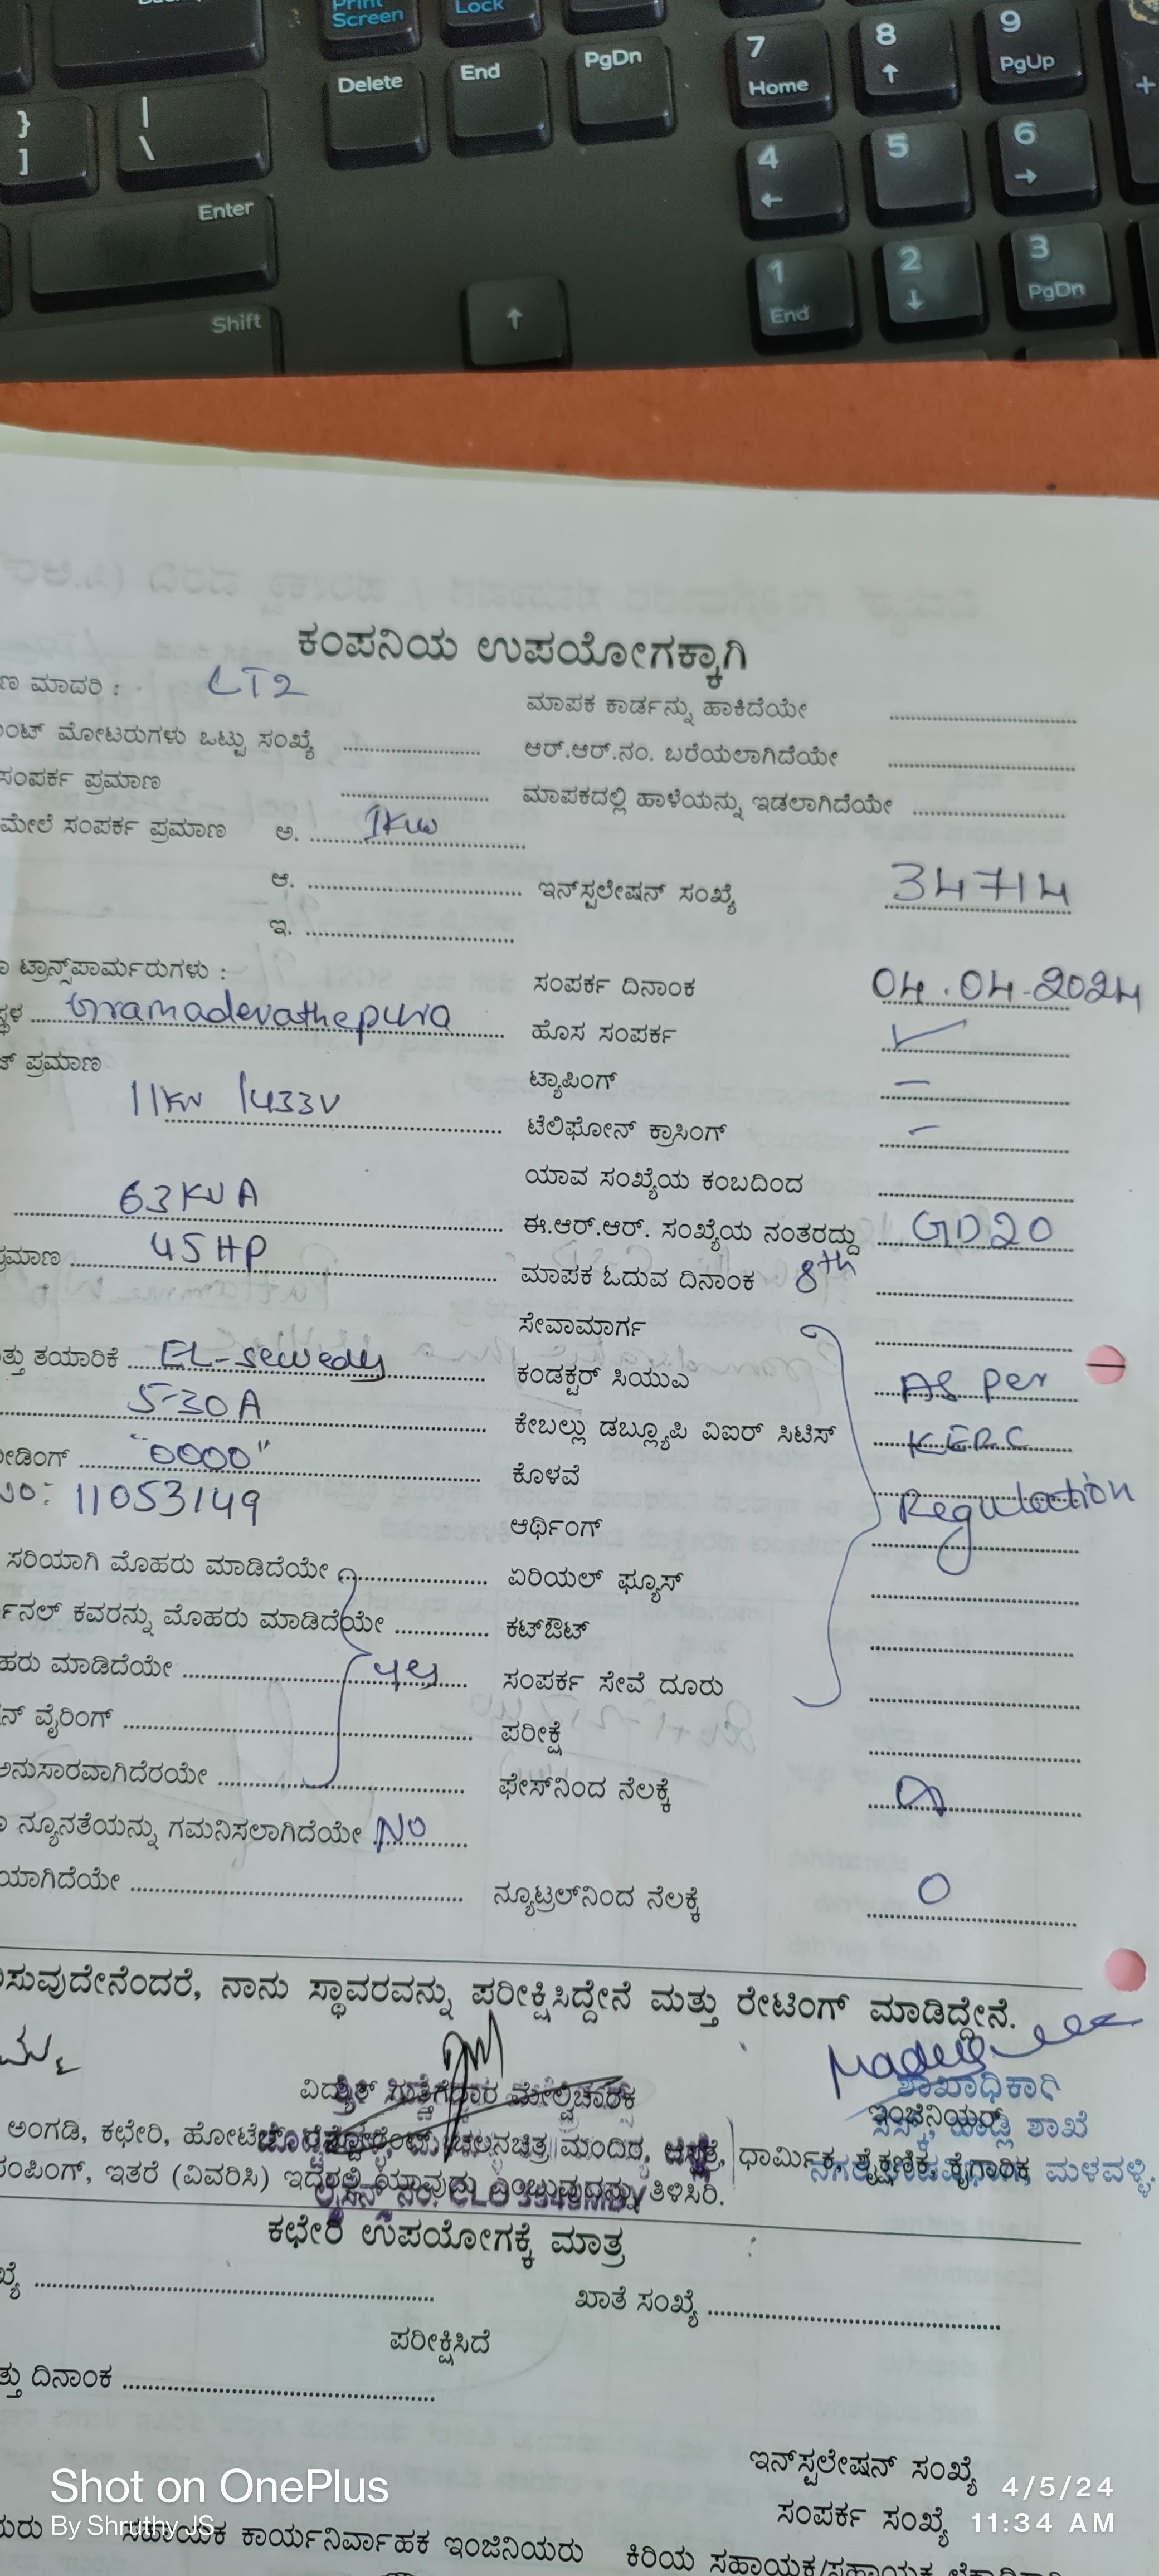 Print
Screen
Lock
Delete
End
PgDn
7
Home
8
↑
9
PgUp
+
}
]
|
\
4
←
5
6
→
Enter
1
End
2
↓
3
PgDn
Shift
↑
ಕಂಪನಿಯ ಉಪಯೋಗಕ್ಕಾಗಿ
ಮಾದರಿ : LT2
ಮಾಪಕ ಕಾರ್ಡನ್ನು ಹಾಕಿದೆಯೇ
ಮೋಟರುಗಳು ಒಟ್ಟು ಸಂಖ್ಯೆ
ಆರ್.ಆರ್.ನಂ. ಬರೆಯಲಾಗಿದೆಯೇ
ಸಂಪರ್ಕ ಪ್ರಮಾಣ
ಮಾಪಕದಲ್ಲಿ ಹಾಳೆಯನ್ನು ಇಡಲಾಗಿದೆಯೇ
ಮೇಲೆ ಸಂಪರ್ಕ ಪ್ರಮಾಣ ಅ. 1KW
ಆ.
ಇನ್‌ಸ್ಟಲೇಷನ್ ಸಂಖ್ಯೆ 34714
ಇ.
ಟ್ರಾನ್ಸ್‌ಪಾರ್ಮರುಗಳು :
ಸಂಪರ್ಕ ದಿನಾಂಕ 04.04-2024
Gramadevathepura
ಹೊಸ ಸಂಪರ್ಕ ✓
ಪ್ರಮಾಣ
11KV /433V
ಟ್ಯಾಪಿಂಗ್ –
ಟೆಲಿಫೋನ್ ಕ್ರಾಸಿಂಗ್ –
ಯಾವ ಸಂಖ್ಯೆಯ ಕಂಬದಿಂದ
63KVA
ಈ.ಆರ್.ಆರ್. ಸಂಖ್ಯೆಯ ನಂತರದ್ದು GD20
45HP
ಮಾಪಕ ಓದುವ ದಿನಾಂಕ 8th
ಸೇವಾಮಾರ್ಗ
ತಯಾರಿಕೆ EL-sewedy
ಕಂಡಕ್ಟರ್ ಸಿಯುಎ As per
5-30A
ಕೇಬಲ್ಲು ಡಬ್ಲ್ಯೂಪಿ ವಿಐರ್ ಸಿಟಿಸ್ KERC
"0000"
ಕೊಳವೆ Regulation
NO: 11053149
ಆರ್ಥಿಂಗ್
ಸರಿಯಾಗಿ ಮೊಹರು ಮಾಡಿದೆಯೇ
ಏರಿಯಲ್ ಫ್ಯೂಸ್
ಕವರನ್ನು ಮೊಹರು ಮಾಡಿದೆಯೇ
ಕಟ್‌ಔಟ್
ಮಾಡಿದೆಯೇ
ಸಂಪರ್ಕ ಸೇವೆ ದೂರು
ವೈರಿಂಗ್
ಪರೀಕ್ಷೆ
ಅನುಸಾರವಾಗಿದೆರಯೇ
ಫೇಸ್‌ನಿಂದ ನೆಲಕ್ಕೆ
ನ್ಯೂನತೆಯನ್ನು ಗಮನಿಸಲಾಗಿದೆಯೇ NO
ನ್ಯೂಟ್ರಲ್‌ನಿಂದ ನೆಲಕ್ಕೆ 0
ನಾನು ಸ್ಥಾವರವನ್ನು ಪರೀಕ್ಷಿಸಿದ್ದೇನೆ ಮತ್ತು ರೇಟಿಂಗ್ ಮಾಡಿದ್ದೇನೆ.
ಶಾಖಾಧಿಕಾರಿ
ಇಂಜಿನಿಯರ್
ಶಾಖೆ
ಅಂಗಡಿ, ಕಛೇರಿ, ಚಲನಚಿತ್ರ ಮಂದಿರ, ಧಾರ್ಮಿಕ, ಶೈಕ್ಷಣಿಕ, ಕೈಗಾರಿಕ
ಮಳವಳ್ಳಿ.
ಇತರೆ (ವಿವರಿಸಿ) ತಿಳಿಸಿರಿ.
ಕಛೇರಿ ಉಪಯೋಗಕ್ಕೆ ಮಾತ್ರ
ಖಾತೆ ಸಂಖ್ಯೆ
ಪರೀಕ್ಷಿಸಿದೆ
ದಿನಾಂಕ
ಇನ್‌ಸ್ಟಲೇಷನ್ ಸಂಖ್ಯೆ
ಸಂಪರ್ಕ ಸಂಖ್ಯೆ
Shot on OnePlus
By Shruthy JS
4/5/24
11:34 AM
ಸಹಾಯಕ ಕಾರ್ಯನಿರ್ವಾಹಕ ಇಂಜಿನಿಯರು ಕಿರಿಯ